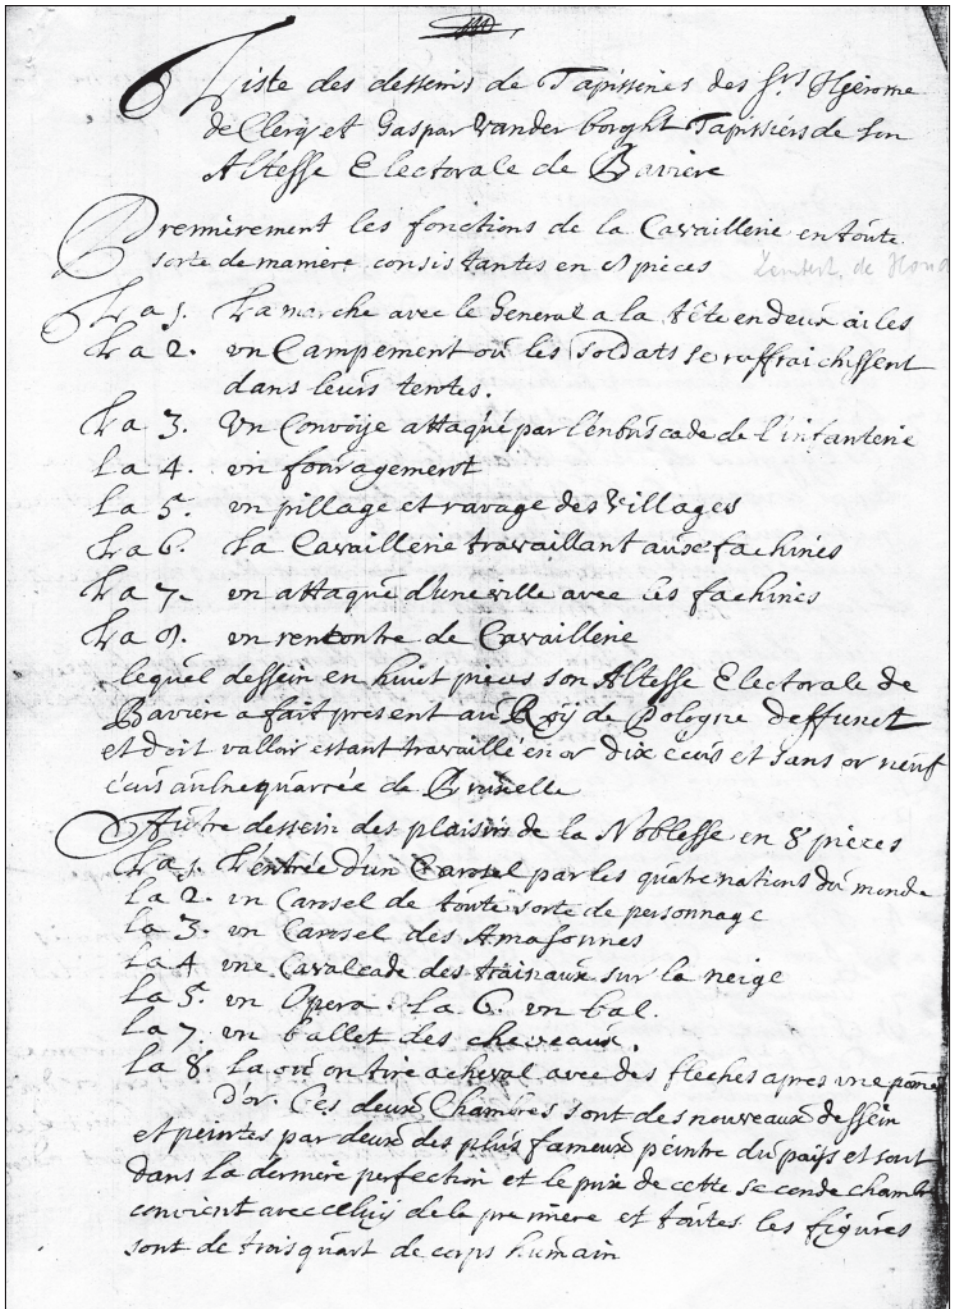 Liste des desseins de Tapisseries des Srs Hierome
de Clerq et Gaspar Vander borght Tapissiers de Son
Altesse Electorale de Baviere
Premierement les fonctions de la Cavaillerie en toute
sorte de maniere consistantes en 8 pieces
La 1. La marche avec le General a la tête en deux ailes
La 2. un Campement où les Soldats se raffraichissent
dans leurs tentes.
La 3. Un Convoije attaqué par l'enbuscade de l'infanterie
La 4. un fouragement
La 5. un pillage et ravage des Villages
La 6. La Cavaillerie travaillant aux fachines
La 7. un attaque d'une ville avec les fachines
La 8. un rencontre de Cavaillerie
lequel dessein en huict pieces son Altesse Electorale de
Baviere a fait present au Roÿ de Pologne deffunct
et doit valloir estant travaillé en or dix écus et sans or neuf
écus aulne quarrée de Bruxelle
Autre dessein des plaisirs de la Noblesse en 8 pieces
La 1. L'entrée d'un Carosel par les quatre nations du monde
La 2. un Carosel de toute sorte de personnage
La 3. un Carosel des Amasonnes
La 4 une Cavalcade des trainaux sur la neige
La 5. un Opera. La 6. un bal.
La 7. un ballet des cheveaux.
La 8. La où on tire a cheval avec des fleches apres une pome
D'or. Ces deux Chambres sont des nouveaux dessein
et peintes par deux des plus fameux peintre du païs et sont
dans la derniere perfection et le prix de cette seconde chambre
convient avec celuy de la premiere et toutes les figures
sont de trois quart de corps humain